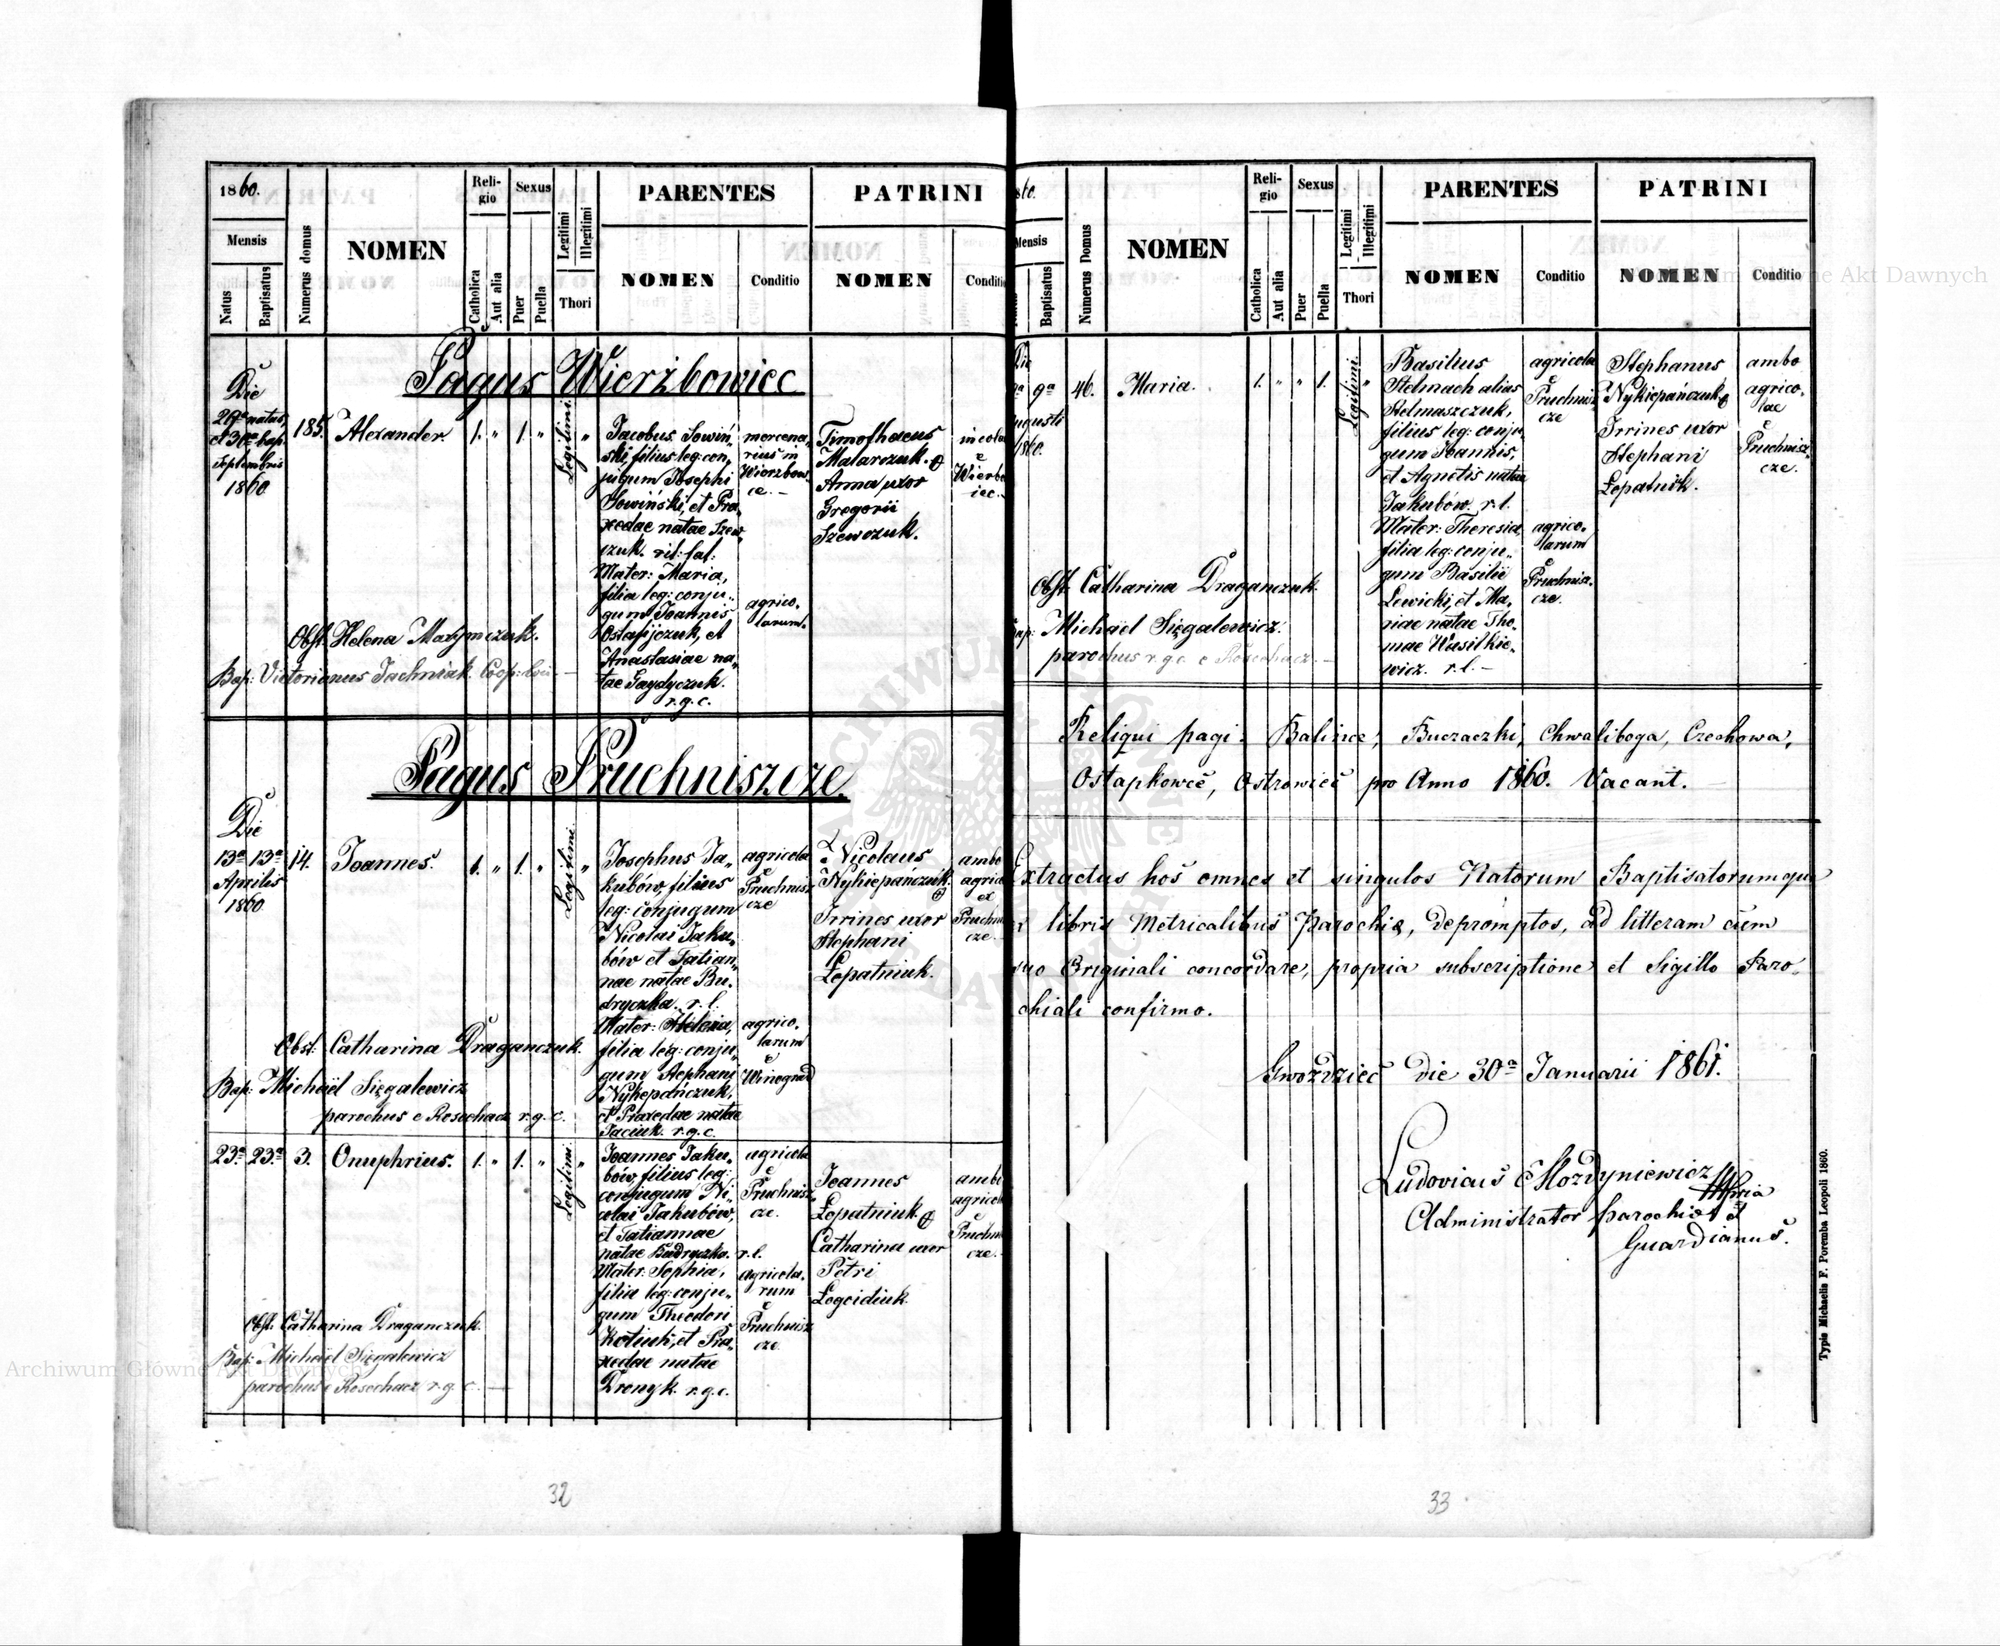 1860.
Mensis
Natus
Baptisatus
Numerus domus
NOMEN
Reli-
gio
Catholica
Aut alia
Sexus
Puer
Puella
Legitimi
Illegitimi
Thori
PARENTES
NOMEN
Conditio
PATRINI
NOMEN
Conditio
Pagus Wierzbowiec
Die
29a natus,
et 30a bap.
Septembris
1860
185.
Alexander.
1. " 1. "
Legitimi.
"
Jacobus Sowiń,
ski, filius leg: con,
jugum Josephi
Sowiński, et Pra,
xedae natae Szew,
czuk. rit: lat:
Mater: Maria,
filia leg: conju,,
gum Joannis
Ostafijczuk, et
Anastasiae na,
tae Gaydyczuk.
r. g. c.
mercena,
rius in
Wierzbow,
ce. -
agrico,
larum.
Timothaeus
Matarczuk. et
Anna uxor
Gregorii
Szewczuk.
incolae
e
Wierbo
iec.
Obst: Helena Maxymczuk.
Bap: Victorianus Jachniak Coop:
Pagus Pruchniszcze.
Die
13a 13a
Aprilis
1860
14.
Joannes.
1. " 1. "
Legitimi.
"
Josephus Ja,
kubów, filius
leg: conjugum
Nicolai Jaku,
bów et Tatian,
nae natae Bu,
dryczka. r. l.
Mater: Helena,
filia leg: conju,
gum Stephani
Nykepańczuk,
et Praxedae natae
Jaciuk. r. g. c.
agricola
e
Pruchnisz
cze
agrico,
larum
e
Winograd
Nicolaus
Nykiepańczuk. et
Irrines uxor
Stephani
Łopatniuk.
ambo
agrico
ex
Pruchni
cze.
Obst: Catharina Draganczuk.
Bap: Michaël Sięgalewicz
parochus e Rosochacz r. g. c.
23a 23a
3.
Onuphrius.
1. " 1. "
Legitimi.
"
Joannes Jaku,
bów, filius leg:
conjugum Ni,
colai Jakubów,
et Tatiannae
natae Budryczka. r. l.
Mater: Sophia,
filia leg: conju,,
gum Theodori
Kotiuk, et Pra,
xedae natae
Dronyk. r. g. c.
agricola
e
Pruchnisz
cze.
agricola,
rum
e
Pruchnisz
cze.
Joannes
Łopatniuk. et
Catharina uxor
Petri
Łogoidiuk.
ambo
agricol
e
Pruchni
cze.
Obst: Catharina Draganczuk.
Bap: Michaël Sięgalewicz
parochus e Rosochacz r. g. c.
32
Mensis
Baptisatus
Numerus Domus
NOMEN
Reli-
gio
Catholica
Aut alia
Sexus
Puer
Puella
Legitimi
Illegitimi
Thori
PARENTES
NOMEN
Conditio
PATRINI
NOMEN
Conditio
Die
9a 9a
Augusti
1860.
46.
Maria.
1. " " 1.
Legitimi.
"
Basilius
Stelmach alias
Stelmaszczuk,
filius leg: conju,
gum Joannis,
et Agnetis natae
Jakubów. r. l.
Mater: Theresia,
filia leg: conju,,
gum Basilii
Lewicki, et Ma,
riae natae Tho,
mae Wasilkie,
wicz. r. l. -
agricola
e
Pruchnisz
cze
agrico,
larum
e
Pruchnisz,
cze.
Stephanus
Nykiepańczuk et
Irrines uxor
Stephani
Łopatniuk.
ambo
agrico,
lae
e
Pruchnisz,
cze.
Obst: Catharina Draganczuk.
Bap: Michaël Sięgalewicz.
parochus r. g. c. e Rosochacz. -
Reliqui pagi: Balince, Buczaczki, Chwaliboga, Czechowa,
Ostapkowce, Ostrowiec pro Anno 1860. Vacant.
Extractus hos omnes et singulos Natorum Baptisatorumque
ex libris Metricalibus Parochiae, depromptos, ad litteram cum
suo Originali concordare, propria subscriptione et Sigillo Paro,
chiali confirmo.
Gwoździec die 30a Januarii 1861.
Ludovicus Mozdyniewicz mpria
Administrator parochiae et
Guardianus.
Typis Michaelis F. Poremba Leopoli 1860.
33
ARCHIWUM GŁÓWNE AKT DAWNYCH
Archiwum Główne Akt Dawnych